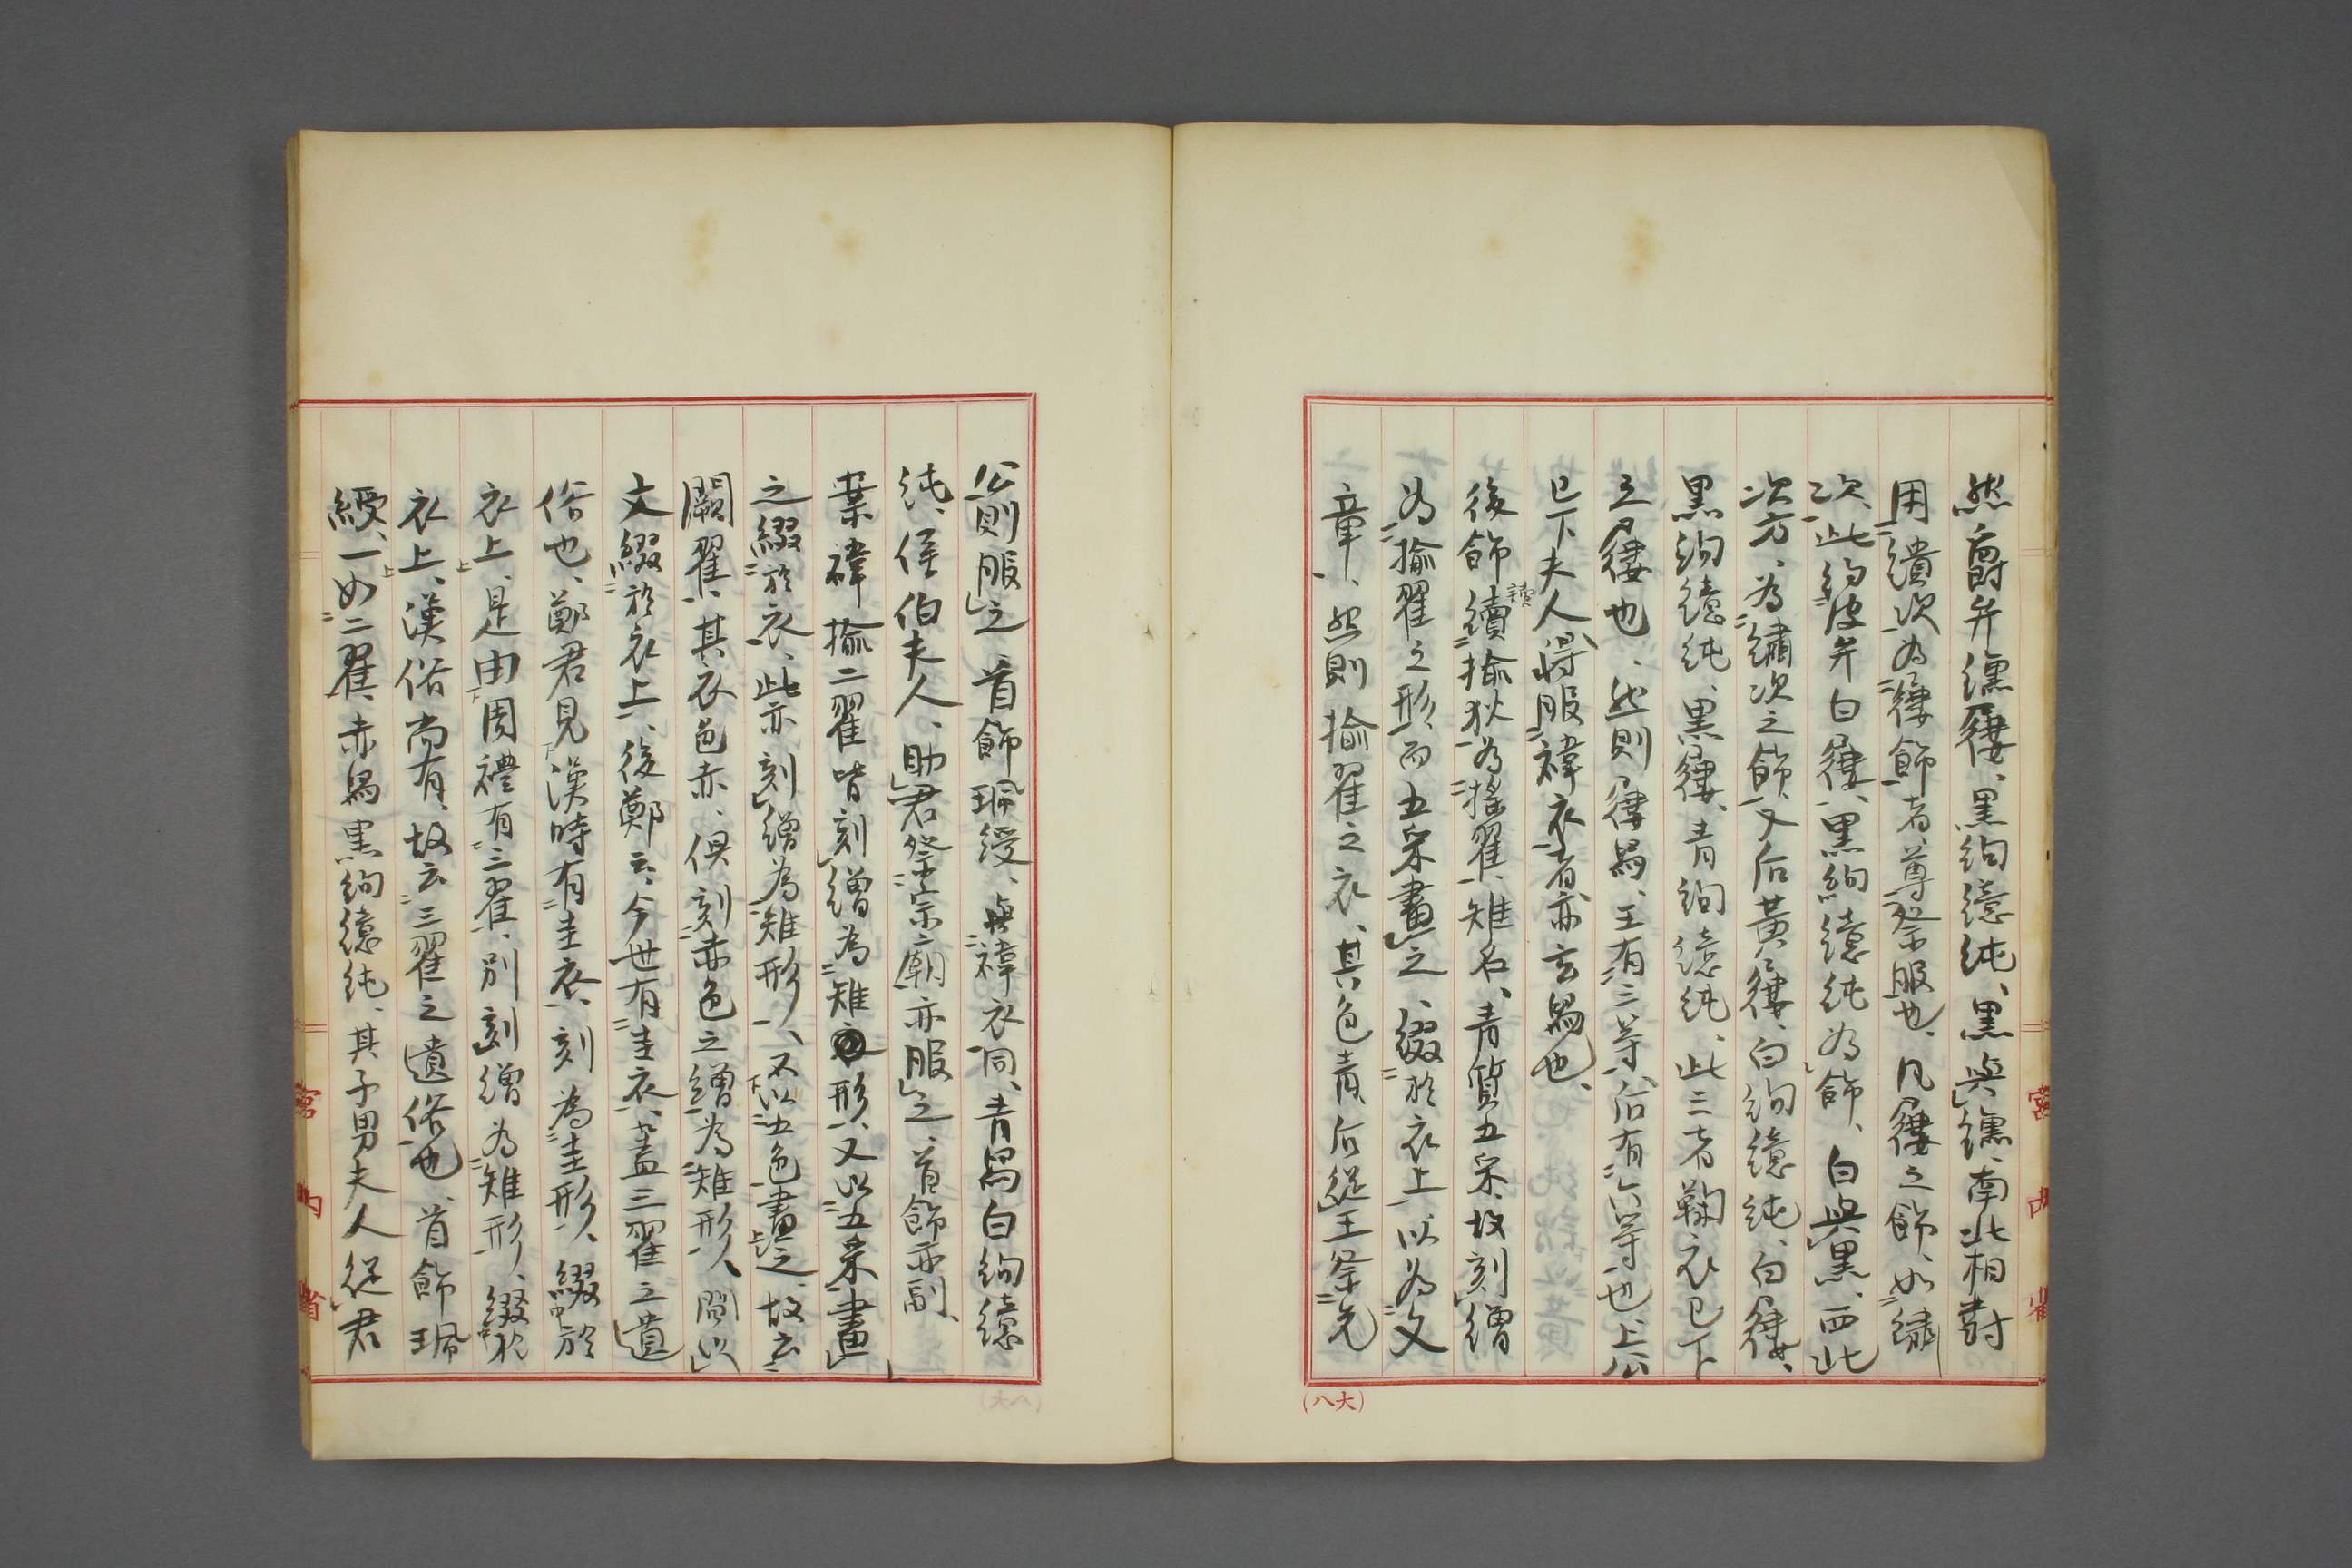 然爵弁纁屨、黒絇繶純、黒與纁、南北相對
用繢次為屨飾者、尊祭服也、凡屨之飾、如繡
次、此約皮弁白屨、黒絇繶純為飾、白與黒、西北
次方、為繡次之飾、又后黄屨、白絇繶純、白屨、
黒絇繶純、黒屨、青絇繶純、此三者鞠衣已下
之屨也、然則屨舄、王有三等、后有六等也、上公
已下夫人得服褘衣者亦玄舄也、
後飾續揄狄為搖翟、雉名、青質五采、故刻繒
讀
為揄翟之形、而五采畫之、綴於衣上、以為文
章、然則揄翟之衣、其色青、后從王祭先
公則服之、首飾珮綬、與褘衣同、青舄白絇繶
純、侯伯夫人、助君祭宗廟亦服之、首飾亦副、
葉褘揄二翟皆刻繒為雉形、又以五采畫
之綴於衣、此亦刻繒為雉形、不以五色畫之、故云
闕翟、其衣色赤、俱刻赤色之繒為雉形、間以
文綴於衣上、後鄭云、今世有圭衣、蓋三翟之遺
俗也、鄭君見漢時有圭衣、刻為圭形、綴於
衣上、是由周禮有三翟、別刻繒為雉形、綴於
衣上、漢俗尚有、故云三翟之遺俗也、首飾珮
綬、一如二翟、赤舄黒絇繶純、其子男夫人從君
宮内省
宮内省
(八大)